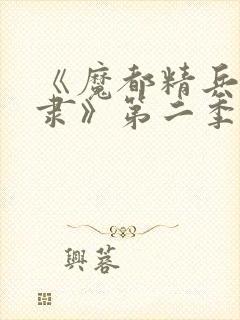 《魔都精兵
隶》第二季
兴蓉